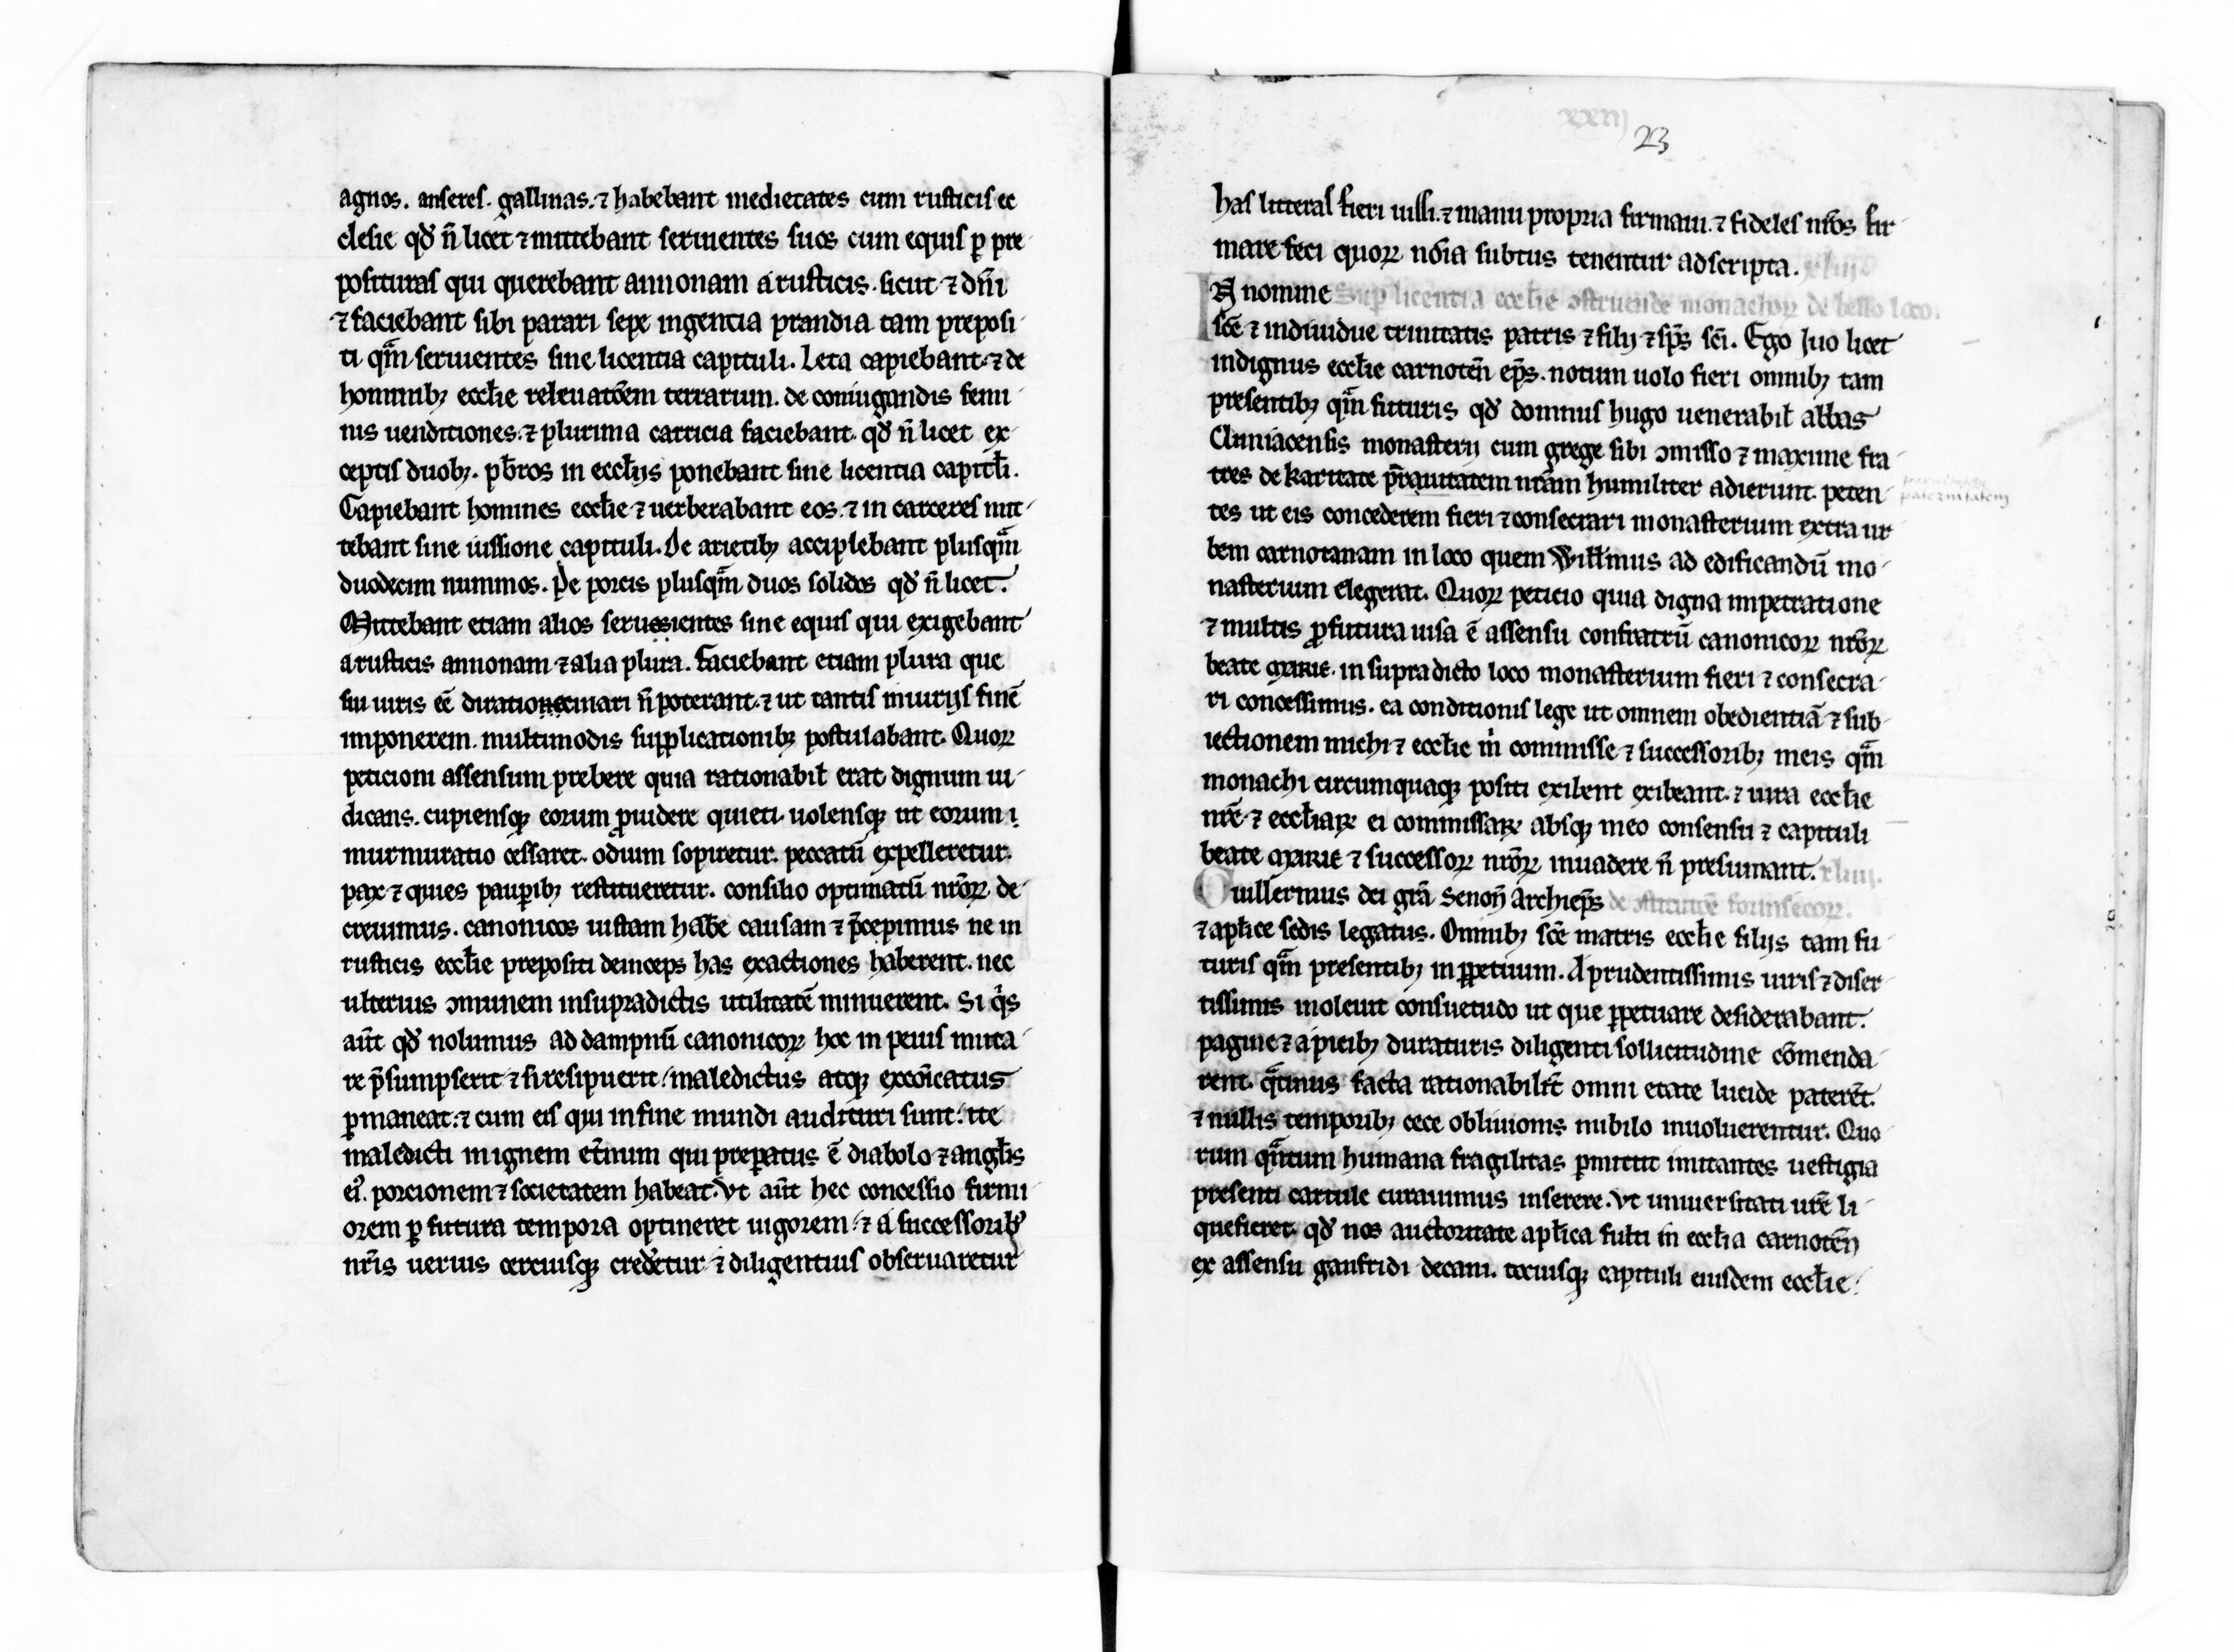 agnos. anseres. gallinas. ⁊ habebant medietates cum rusticis ec
clesie qđ n̄ licet ⁊ mittebant seruientes suos cum equis ꝑ pre
posituras qui querebant annonam a rusticis. sicut ⁊ dn̄i
⁊ faciebant sibi parari sepe ingentia prandia tam preposi
ti qm̄ seruientes sine licentia capituli. Leta capiebant. ⁊ de
hominibꝫ eccłie releuatōem terrarum. de coniugandis femi
nis uenditiones. ⁊ plurima carricia faciebant. qđ n̄ licet ex
ceptis duobꝫ. pb̄ros in eccłijs ponebant sine licentia capitłi.
Capiebant homines eccłie ⁊ uerberabant eos. ⁊ in carceres mit
tebant sine iussione capituli. De arietibꝫ accipiebant plusqm̄
duodecim nummos. De porcis plusqm̄ duos solidos qđ n̄ licet.
Mittebant etiam alios seruientes sine equis qui exigebant
a rusticis annonam ⁊ alia plura. Faciebant etiam plura que
sui iuris eē diratiocinari n̄ poterant. ⁊ ut tantis iniurijs finē
imponerem. multimodis supplicationibꝫ postulabant. Quoꝝ
peticioni assensum prebere quia rationabił erat dignum iu
dicans. cupiensqꝫ eorum ꝓuidere quieti. uolensqꝫ ut eorum i
murmuratio cessaret. odium sopiretur. peccatū expelleretur.
pax ⁊ quies pauꝑibꝫ restitueretur. consilio optimatū nr̄oꝝ de
creuimus. canonicos iustam habē causam ⁊ p̄cepimus ne in
rusticis eccłie prepositi deinceps has exactiones haberent. nec
ulterius ɔmunem insupradictis utilitatē minuerent. Si q̇s
aūt qđ nolumus ad dampnū canonicoꝝ hoc in peius muta
re p̄sumpserit ⁊ si resipuerit / maledictus atqꝫ excōicatus
ꝑmaneat. ⁊ cum eis qui in fine mundi audituri sunt. ite
maledicti in ignem et̄num qui preꝑatus ē diabolo ⁊ angłis
ei᷒. porcionem ⁊ societatem habeat. Vt aūt hec concessio firmi
orem ꝑ futura tempora optineret uigorem. ⁊ a successoribꝫ
nr̄is uerius certiusqꝫ crederetur ⁊ diligentius obseruaretur
xxiij
23
has litteras fieri iussi. ⁊ manu propria firmaui. ⁊ fideles nr̄os fir
mare feci quoꝝ nōia subtus tenentur adscripta.
In nomine Sup licentia eccłie ɔstruende monachoꝝ de bello loco.
scē ⁊ indiuidue trinitatis patris ⁊ filij ⁊ sp̄s sc̄i. Ego Iuo licet
indignus eccłie carnotēn ep̄s. notum uolo fieri omnibꝫ tam
presentibꝫ qm̄ futuris qđ domnus hugo uenerabił abbas
Cluniacensis monasterij cum grege sibi ɔmisso ⁊ maxime fra
tres de karitate p̄rauitatem nrām humiliter adierunt. peten
paternitatem
tes ut eis concederem fieri ⁊ consecrari monasterium extra ur
bem carnotanam in loco quem Willmus ad edificandū mo
nasterium elegerat. Quoꝝ peticio quia digna impetratione
⁊ multis ꝓfutura uisa ē assensu confratrū canonicoꝝ nr̄oꝝ
beate marie. in supradicto loco monasterium fieri ⁊ consecra
ri concessimus. ea conditionis lege ut omnem obedientiā ⁊ sub
iectionem michi ⁊ eccłie m̍ commisse ⁊ successoribꝫ meis qm̄
monachi circumquaqꝫ positi exibent exibeant. ⁊ iura eccłie
nr̄e ⁊ eccłiaꝝ ei commissaꝝ absqꝫ meo consensu ⁊ capituli
beate marie ⁊ successoꝝ nr̄oꝝ inuadere n̄ presumant. xliiij.
Guillermus dei grā Senoñ archiep̄s de ɔstitutōe forinsecoꝝ.
⁊ apłice sedis legatus. Omnibꝫ scē matris eccłie filijs tam fu
turis qm̄ presentibꝫ in ꝑpetuum. A prudentissimis uiris ⁊ diser
tissimis inoleuit consuetudo ut que ꝑpetuare desiderabant.
pagine ⁊ apicibꝫ duraturis diligenti sollicitudine cōmenda
rent. qt̄inus facta rationabilit̄ omni etate lucide paterēt.
⁊ nullis temporibꝫ cece obliuionis nubilo inuoluerentur. Quo
rum qn̄tum humana fragilitas ꝑmittit imitantes uestigia
presenti cartule curauimus inserere. Vt uniuersitati ur̄e li
quefieret. qđ nos auctoritate apłica fulti in eccłia carnotēn
ex assensu gaufridi decani. totiusqꝫ capituli eiusdem eccłie.